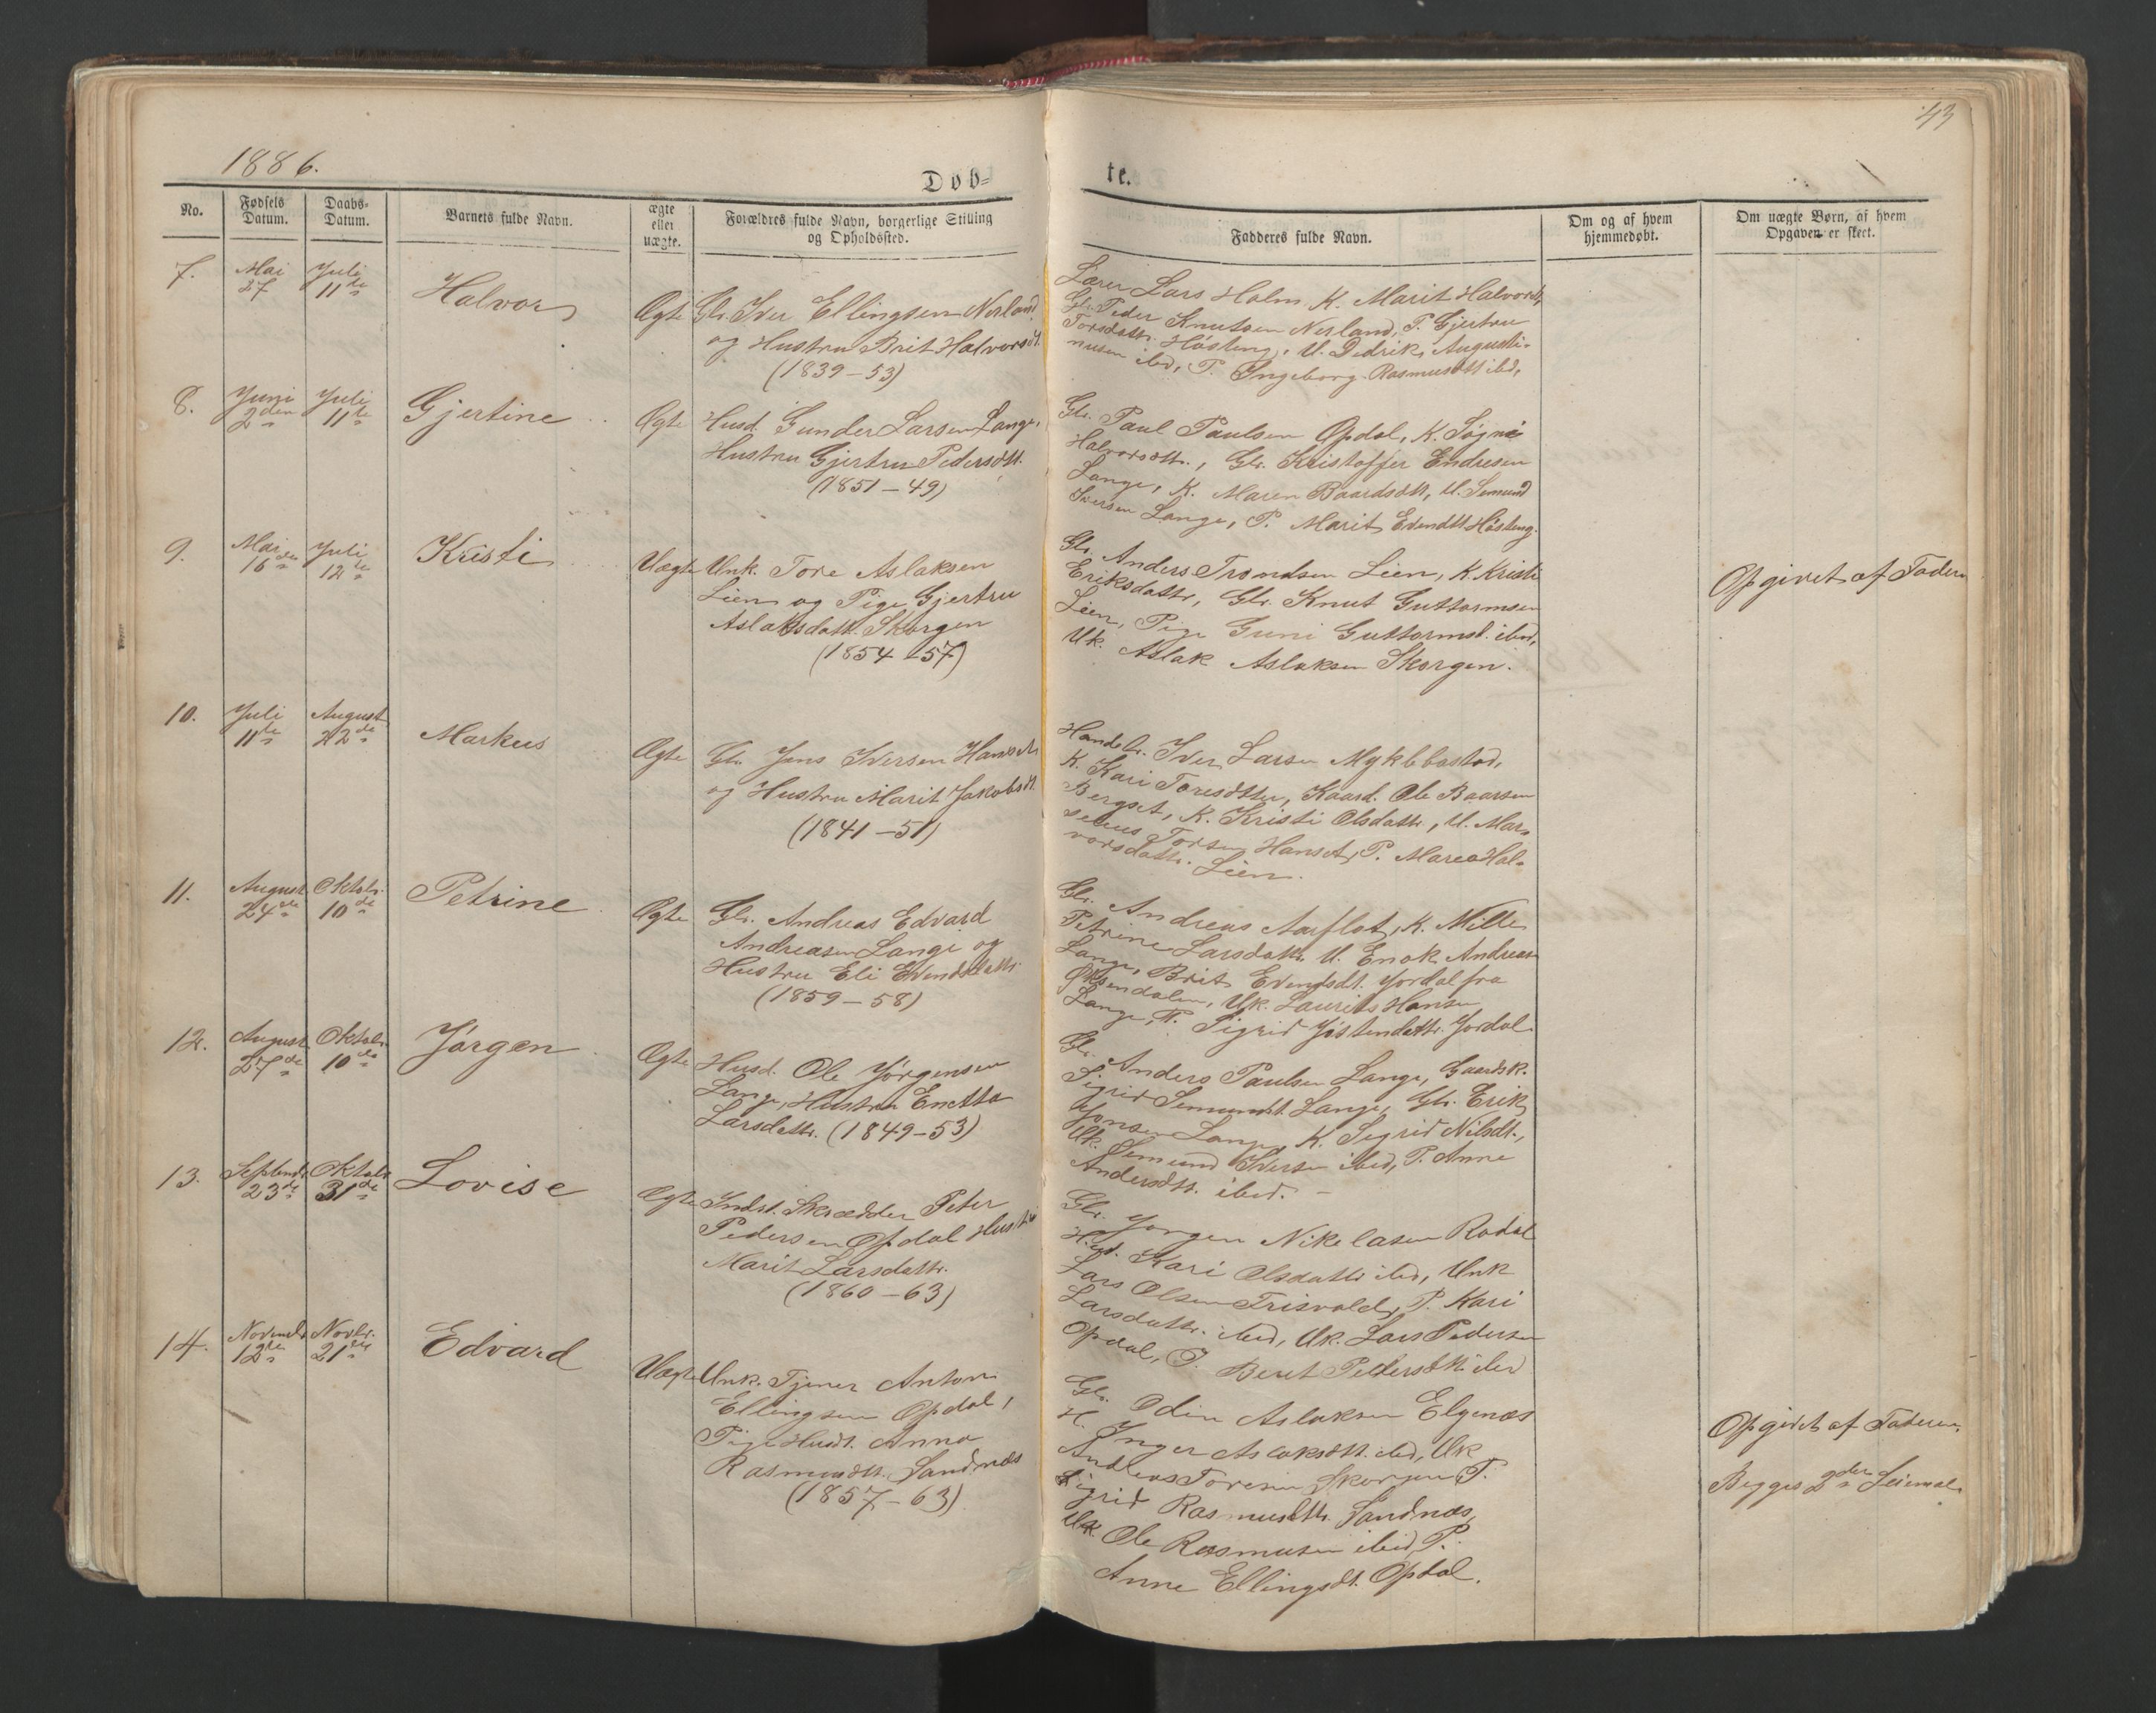 1886.
43
Døb=
te.
No.
Fødsels
Datum.
Daabs-
Datum.
Barnets fulde Navn.
ægte
eller
uægte.
Forældres fulde Navn, borgerlige Stilling
og Opholdssted.
Fadderes fulde Navn.
Om og af hvem
hjemmedøbt.
Om uægte Børn, af hvem
Opgaven er skeet.
7.
Mai
27
Juli
11te
Halvor
Ægte
Gbr. Iver Ellingsen Nerland
og Hustru Brit Halvorsdt.
(1839-53)
Lærer Lars Holm K. Marit Halvorsdt,
Gbr. Peder Knutsen Nerland, P. Gjertru
Torsdatter Høsteng, U. Didrik Augusti-
nusen ibd, P. Ingeborg Rasmusdtt ibd,
8.
Juni
2den
Juli
11te
Gjertine
Ægte
Husd. Gunder Larsen Lange,
Hustru Gjertru Pedersdtt.
(1851-49)
Gbr. Paul Paulsen Opdal, K. Søgni
Halvorsdtt., Gbr. Kristoffer Endresen
Lange, K. Maren Baardsdtt, U. Semund
Iversen Lange, P. Marit Evendtt Høsteng.
9.
Mai
16de
Juli
12te
Kristi
Uægte
Unk. Tore Aslaksen
Lien og Pige Gjertru
Aslaksdatt. Skorgen
(1854-57)
Gbr. Anders Trondsen Lien, K. Kristi
Eriksdatter, Gbr. Knut Guttormsen
Lien, Pige Guni Guttormsd. ibd,
Uk. Aslak Aslaksen Skorgen.
Opgivet af Faderen
10.
Juli
11te
August
22de
Markus
Ægte
Gbr. Jens Iversen Hanset
og Hustru Marit Jakobsdt.
(1841-51)
Handelsb. Iver Larsen Myklebostad,
K. Kari Toresdtter, Kaard. Ole Baarsen
Bergset, K. Kristi Olsdatter, U. Mar-
selius Torsen Hanset, P. Marea Hal-
vorsdatter. Lien.
11.
August
24de
Oktobr.
10de
Petrine
Ægte
Gbr. Andreas Edvard
Andreasen Lange og
Hustru Eli Evendsdatter
(1859-58)
Gbr. Andreas Aarflot, K. Mille
Petrine Larsdatter, U. Enok Andreasen
Lange, Brit Evendsdt. Jordal fra
Øksendalen, Uk. Laurits Hansen
Lange, P. Sigrid Jøstendatter Jordal.
12.
August
27de
Oktobr.
10de
Jørgen
Ægte
Husd. Ole Jørgensen
Lange, Hustru Enetta
Larsdatter. (1849-53)
Gbr. Anders Paulsen Lange, Gaardk.
Sigrid Semundsdt. Lange, Gbr. Erik
Jonsen Lange, K. Sigrid Nilsdt.,
Uk. Semund Iversen ibd, P. Anne
Andersdtt. ibid. -
13.
Septembr
23de
Oktobr
31de
Lovise
Ægte
Inds. Skrædder Peter
Pedersen Opdal Hustru
Marit Larsdatter.
(1860-63)
Gbr. Jørgen Nikolasen Rødal
Kari Olsdatter ibd, Unk
Lars Olsen Trisvold, P. Kari
Larsdatter. ibid, Uk. Lars Pedersen
Opdal, P. Berit Pedersdtt. ibd
14.
Novembr
12te
Novbr.
21de
Edvard
Uægte
Unk. Tjener Anton
Ellingsen Opdal,
Pige Husdt. Anna
Rasmusdtt. Sandnæs
(1857-63)
Gbr. Odin Aslaksen Elgenæs
H. Inger Aslaksdtt. ibd, Uk
Andreas Toresen Skorgen P.
Sigrid Rasmusdtt. Sandnæs,
Uk. Ole Rasmusen ibid, P.
Anne Ellingsdt. Opdal.
Opgivet af Faderen.
Begges 2den Leiermaal